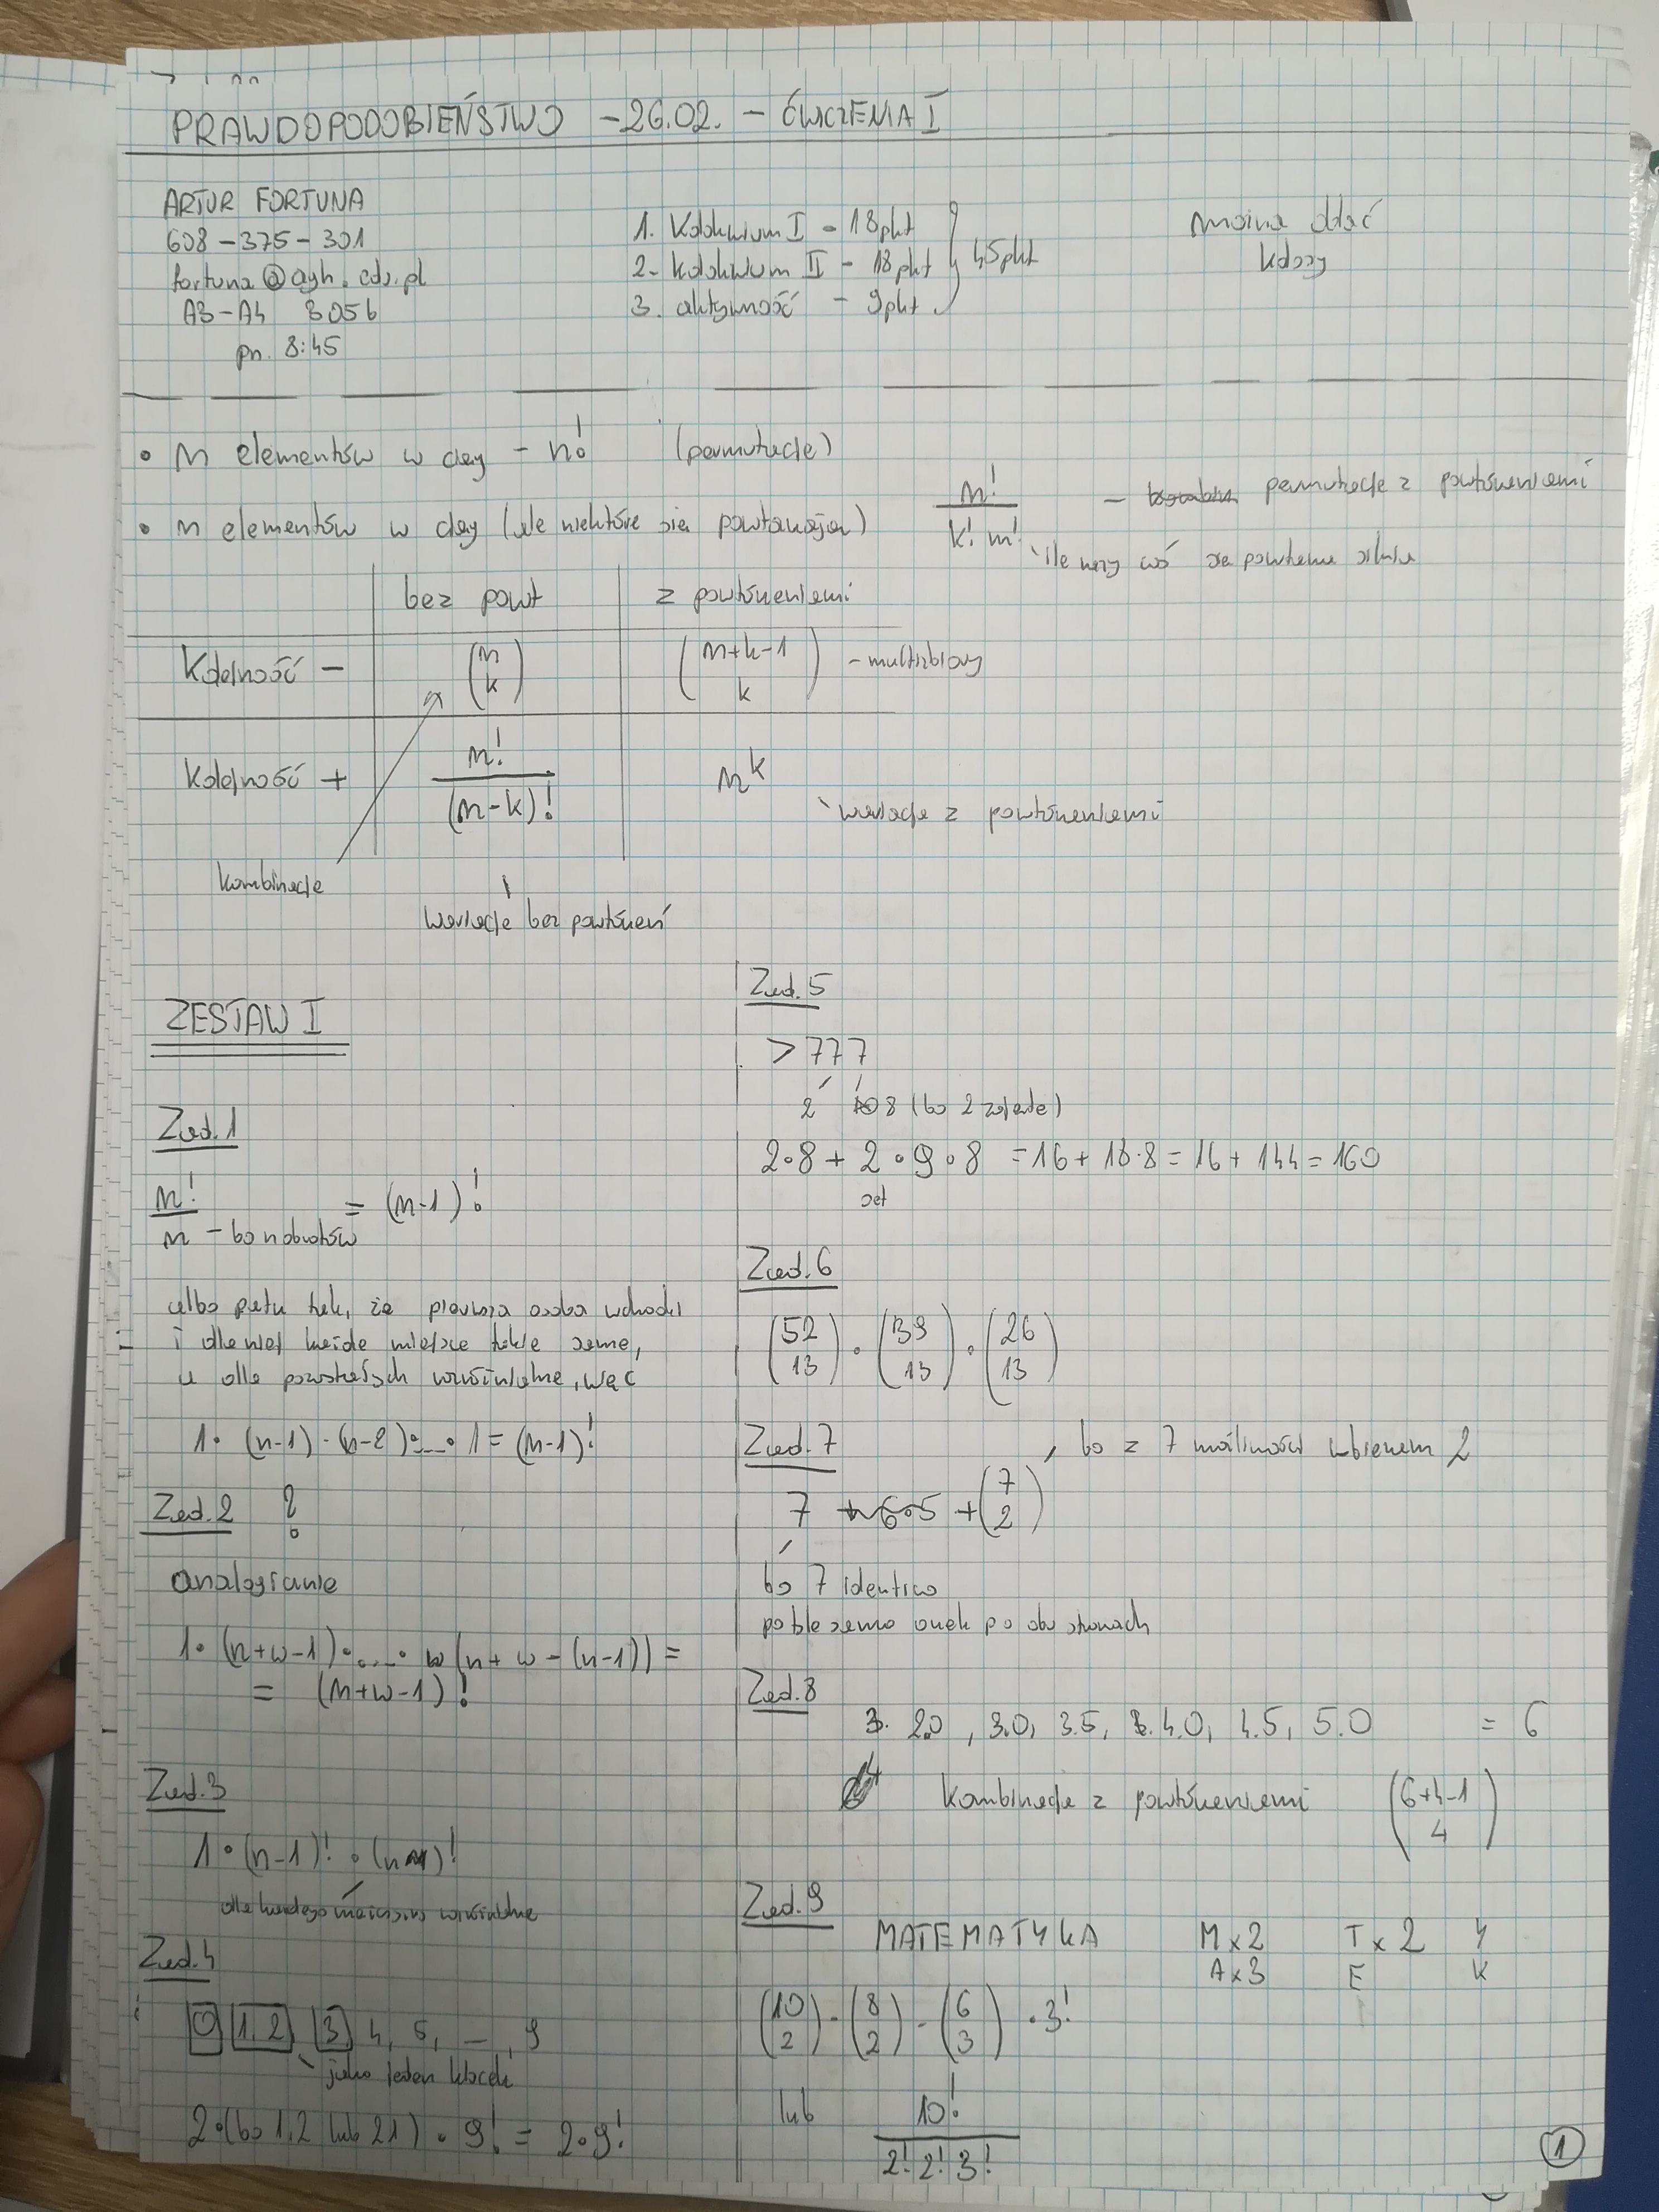 PRAWDOPODOBIEŃSTWO - 26.02. - ĆWICZENIA I
ARTUR FORTUNA
608-375-301
fortuna@agh.edu.pl
A3-A4 3056
pn. 8:45
1. Kolokwium I - 18pkt
2. Kolokwium II - 18pkt
3. aktywność - 9pkt
45pkt
można oblać
kolosy
• n elementów w ciąg - n! (permutacje)
• n elementów w ciąg (ale niektóre się powtarzają)
n!
k! m!
- permutacje z powtórzeniami
ile razy coś się powtarza
bez powt
z powtórzeniami
Kolejność -
(n k)
(n+k-1 k) - multizbiory
Kolejność +
n!
(n-k)!
n^k
wariacje z powtórzeniami
kombinacje
wariacje bez powtórzeń
ZESTAW I
Zad. 1
n! = (n-1)!
n - bo n obrotów
albo patrz tak, że pierwsza osoba wchodzi
i dla niej każde miejsce takie samo,
a dla pozostałych rozróżnialne, więc
1 · (n-1) · (n-2) · ... · 1 = (n-1)!
Zad. 2 ?
analogicznie
1 · (n+w-1) · ... · (n+w-(n-1)) =
= (n+w-1)!
Zad. 3
1 · (n-1)! · (n)!
dla każdego
Zad. 4
0 1,2 3 4, 5, ... , 9
jako jeden klocek
2·(bo 1,2 lub 21) · 9! = 2·9!
Zad. 5
> 777
2 8 (bo 2 zajęte)
2·8 + 2·9·8 = 16 + 18·8 = 16 + 144 = 160
set
Zad. 6
(52 13) · (39 13) · (26 13)
Zad. 7
, bo z 7 możliwości wbieram 2
7 + 6·5 + (7 2)
bo 7 identico
to samo oczek po obu stronach
Zad. 8
2.0, 3.0, 3.5, 4.0, 4.5, 5.0 = 6
kombinacje z powtórzeniami (6+4-1 4)
Zad. 9
MATEMATYKA M x 2 T x 2 Y
A x 3 E K
(10 2) · (8 2) · (6 3) · 3!
lub 10!
2! 2! 3!
1